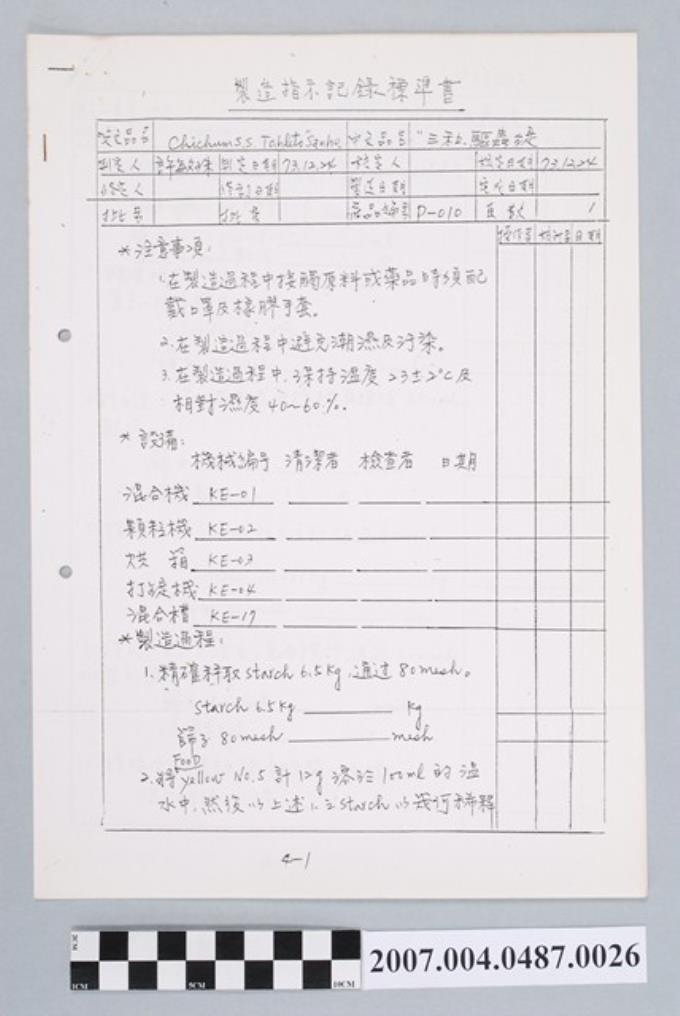 製造指示記錄標準書
英文品名 Chichum S.S. Tablets "Sanho" 中文品名 "三和"驅蟲錠
制定人 制定日期 73.12.24 核定人 核定日期 73.12.24
修定人 修訂日期 製造日期 完成日期
批号 批量 產品編號 D-010 頁數 1
操作者 核对者 日期
*注意事項:
1.在製造過程中接觸原料或藥品時須配
戴口罩及橡膠手套。
2.在製造過程中避免潮濕及汙染。
3.在製造過程中,保持溫度 23±2°C及
相對濕度 40~60%。
*設備:
機械編号 清潔者 檢查者 日期
混合機 KE-01
顆粒機 KE-02
烘箱 KE-03
打錠機 KE-04
混合槽 KE-17
*製造過程:
1.精確秤取 starch 6.5kg,通过 80mesh。
starch 6.5kg kg
篩子 80mesh mesh
Food
2.將 yellow No.5 計12g 溶於 100ml 的溫
水中,然後以上述1.之starch 以幾何稀釋
4-1
2CM
1CM 5CM 10CM
2007.004.0487.0026